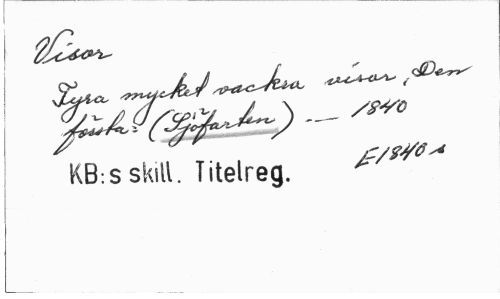 Visor
Fyra mycket vackra visor, Den
första: (Sjöfarten) -- 1840
E1840 s
KB:s skill. Titelreg.